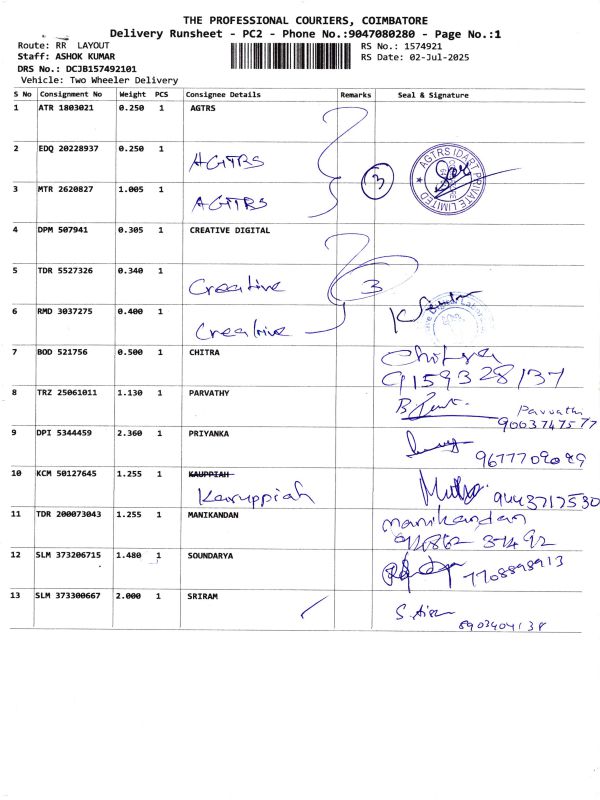 THE PROFESSIONAL COURIERS, COIMBATORE
Delivery Runsheet - PC2 - Phone No.:9047080280 - Page No.:1
Route: RR LAYOUT
RS No.: 1574921
Staff: ASHOK KUMAR
RS Date: 02-Jul-2025
DRS No.: DCJB157492101
Vehicle: Two Wheeler Delivery
S No Consignment No Weight PCS Consignee Details Remarks Seal & Signature
1 ATR 1803021 0.250 1 AGTRS
2 EDQ 20228937 0.250 1 AGTRS
AGTRS IDART PRIVATE LIMITED
3 MTR 2620827 1.005 1 AGTRS 3
4 DPM 507941 0.305 1 CREATIVE DIGITAL
5 TDR 5527326 0.340 1 Creative 3
6 RMD 3037275 0.400 1 Creative
7 BOD 521756 0.500 1 CHITRA Chitra
9159328137
8 TRZ 25061011 1.130 1 PARVATHY Parvathi
9003747577
9 DPI 5344459 2.360 1 PRIYANKA
9677709089
10 KCM 50127645 1.255 1 KAUPPIAH
Karuppiah 9443717530
11 TDR 200073043 1.255 1 MANIKANDAN manikandan
12 SLM 373206715 1.480 1 SOUNDARYA
7708898913
13 SLM 373300667 2.000 1 SRIRAM
8903404138